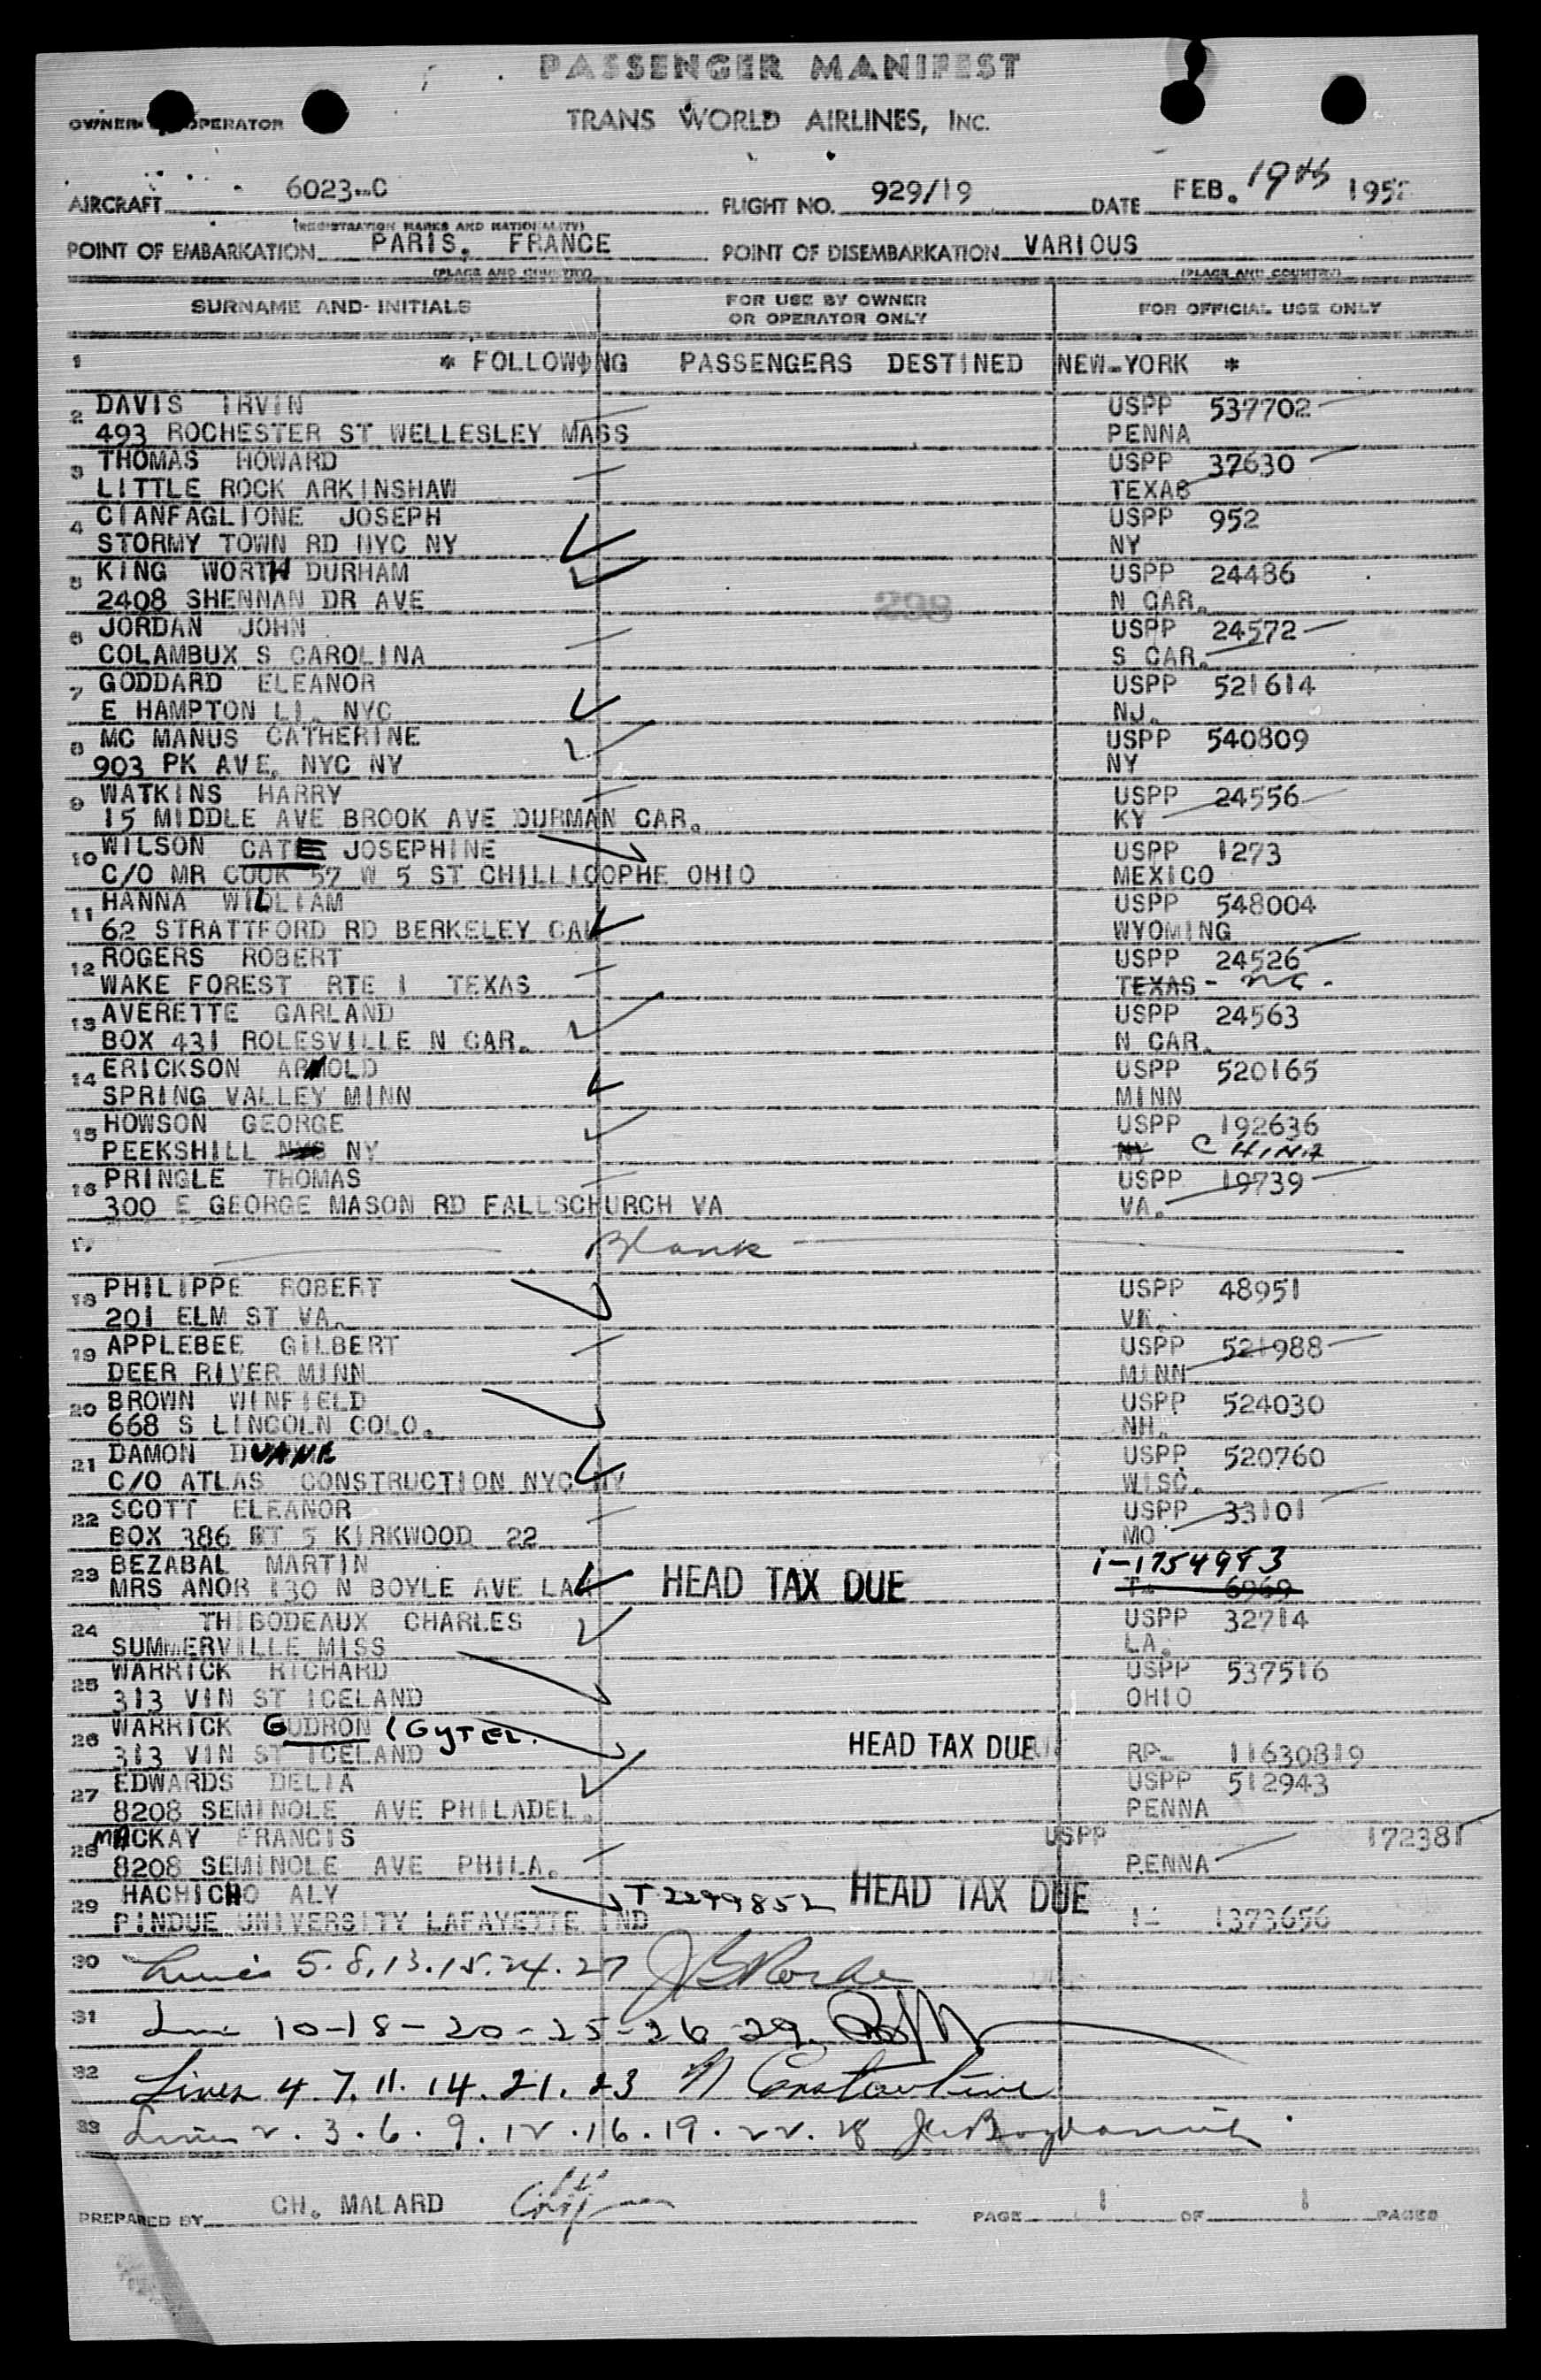 PASSENGER MANIFEST
OWNER OPERATOR TRANS WORLD AIRLINES, INC.
AIRCRAFT 6023--C FLIGHT NO. 929/19 DATE FEB. 19th 195
(REGISTRATION MARKS AND NATIONALITY)
POINT OF EMBARKATION PARIS, FRANCE POINT OF DISEMBARKATION VARIOUS
(PLACE AND COUNTRY) (PLACE AND COUNTRY)
SURNAME AND INITIALS FOR USE BY OWNER OR OPERATOR ONLY FOR OFFICIAL USE ONLY
1 * FOLLOWING PASSENGERS DESTINED NEW-YORK *
2 DAVIS IRVIN USPP 537702
493 ROCHESTER ST WELLESLEY MASS PENNA
3 THOMAS HOWARD USPP 37630
LITTLE ROCK ARKINSHAW TEXAS
4 CIANFAGLIONE JOSEPH USPP 952
STORMY TOWN RD NYC NY NY
5 KING WORTH DURHAM USPP 24486
2408 SHENNAN DR AVE 298 N CAR.
6 JORDAN JOHN USPP 24572
COLAMBUX S CAROLINA S CAR.
7 GODDARD ELEANOR USPP 521614
E HAMPTON LI. NYC NJ.
8 MC MANUS CATHERINE USPP 540809
903 PK AVE. NYC NY NY
9 WATKINS HARRY USPP 24556
15 MIDDLE AVE BROOK AVE DURMAN CAR. KY
10 WILSON CATE JOSEPHINE USPP 1273
C/O MR COOK 57 W 5 ST CHILLICOPHE OHIO MEXICO
11 HANNA WILLIAM USPP 548004
62 STRATTFORD RD BERKELEY CAL WYOMING
12 ROGERS ROBERT USPP 24526
WAKE FOREST RTE 1 TEXAS TEXAS - NC.
13 AVERETTE GARLAND USPP 24563
BOX 431 ROLESVILLE N CAR. N CAR.
14 ERICKSON ARNOLD USPP 520165
SPRING VALLEY MINN MINN
15 HOWSON GEORGE USPP 192636
PEEKSHILL NYC NY NY CHINA
16 PRINGLE THOMAS USPP 19739
300 E GEORGE MASON RD FALLSCHURCH VA VA.
17 Blank
18 PHILIPPE ROBERT USPP 48951
201 ELM ST VA. VA.
19 APPLEBEE GILBERT USPP 521988
DEER RIVER MINN MINN
20 BROWN WINFIELD USPP 524030
668 S LINCOLN COLO. NH.
21 DAMON DUANE USPP 520760
C/O ATLAS CONSTRUCTION NYC NY WISC.
22 SCOTT ELEANOR USPP 33101
BOX 386 RT 5 KIRKWOOD 22 MO
23 BEZABAL MARTIN HEAD TAX DUE i-1754993
MRS ANOR 130 N BOYLE AVE LA T- 6969
24 THIBODEAUX CHARLES USPP 32714
SUMMERVILLE MISS LA.
25 WARRICK RICHARD USPP 537516
313 VIN ST ICELAND OHIO
26 WARRICK GUDRON (GYTEL. HEAD TAX DUE
313 VIN ST ICELAND RP- 11630819
27 EDWARDS DELIA USPP 512943
8208 SEMINOLE AVE PHILADEL. PENNA
28 MACKAY FRANCIS USPP 172381
8208 SEMINOLE AVE PHILA. PENNA
29 HACHICHO ALY T2299852 HEAD TAX DUE
PINDUE UNIVERSITY LAFAYETTE IND I- 1373656
30 Lines 5.8.13.15.24.27
31 Line 10-18-20-25-26-29.
32 Lines 4 7. 11. 14. 21. 23 Constantine
33 Lines 2. 3. 6. 9. 12. 16. 19. 22. 28
PREPARED BY CH. MALARD PAGE 1 OF 1 PAGES